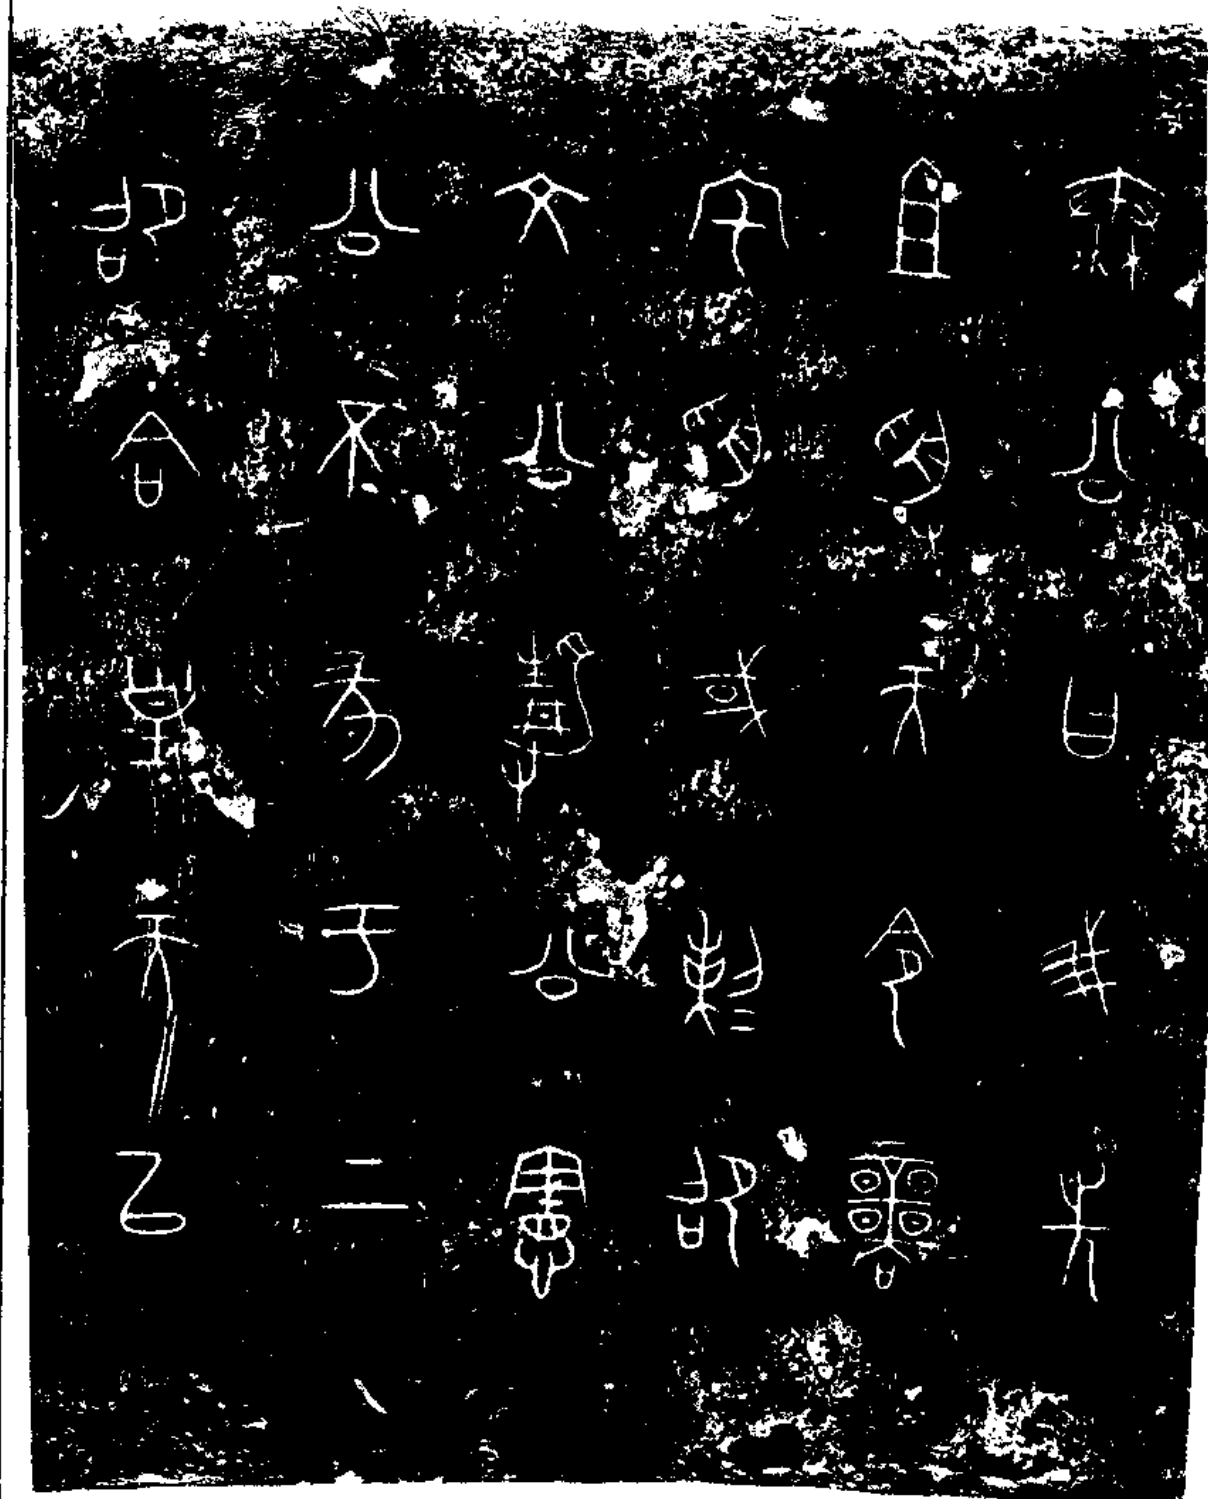 秦公曰我先
且受天令商
宅受或剌=卲
文公静公憲
公不㒸于上
卲合皇天㠯